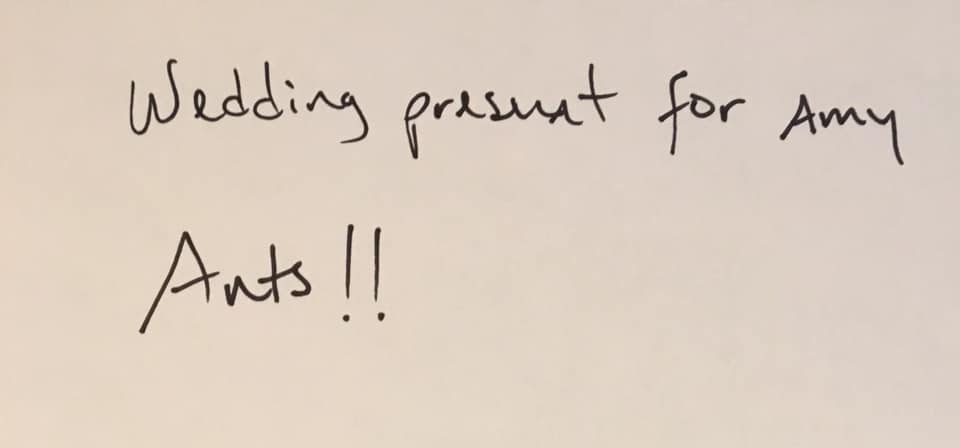 Wedding present for Amy
Ants!!